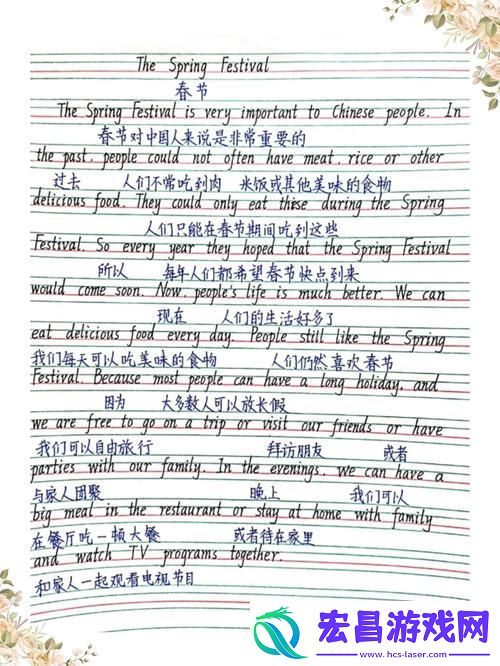 The Spring Festival
春节
The Spring Festival is very important to Chinese people. In
春节对中国人来说是非常重要的
the past, people could not often have meat, rice or other
过去 人们不常吃到肉 米饭或其他美味的食物
delicious food. They could only eat these during the Spring
人们只能在春节期间吃到这些
Festival. So every year they hoped that the Spring Festival
所以 每年人们都希望春节快点到来
would come soon. Now, people's life is much better. We can
现在 人们的生活好多了
eat delicious food every day. People still like the Spring
我们每天可以吃美味的食物 人们仍然喜欢春节
Festival. Because most people can have a long holiday, and
因为 大多数人可以放长假
we are free to go on a trip or visit our friends or have
我们可以自由旅行 拜访朋友 或者
parties with our family. In the evenings, we can have a
与家人团聚 晚上 我们可以
big meal in the restaurant or stay at home with family
在餐厅吃一顿大餐 或者待在家里
and watch TV programs together.
和家人一起观看电视节目
宏昌游戏网
www.hcs-laser.com